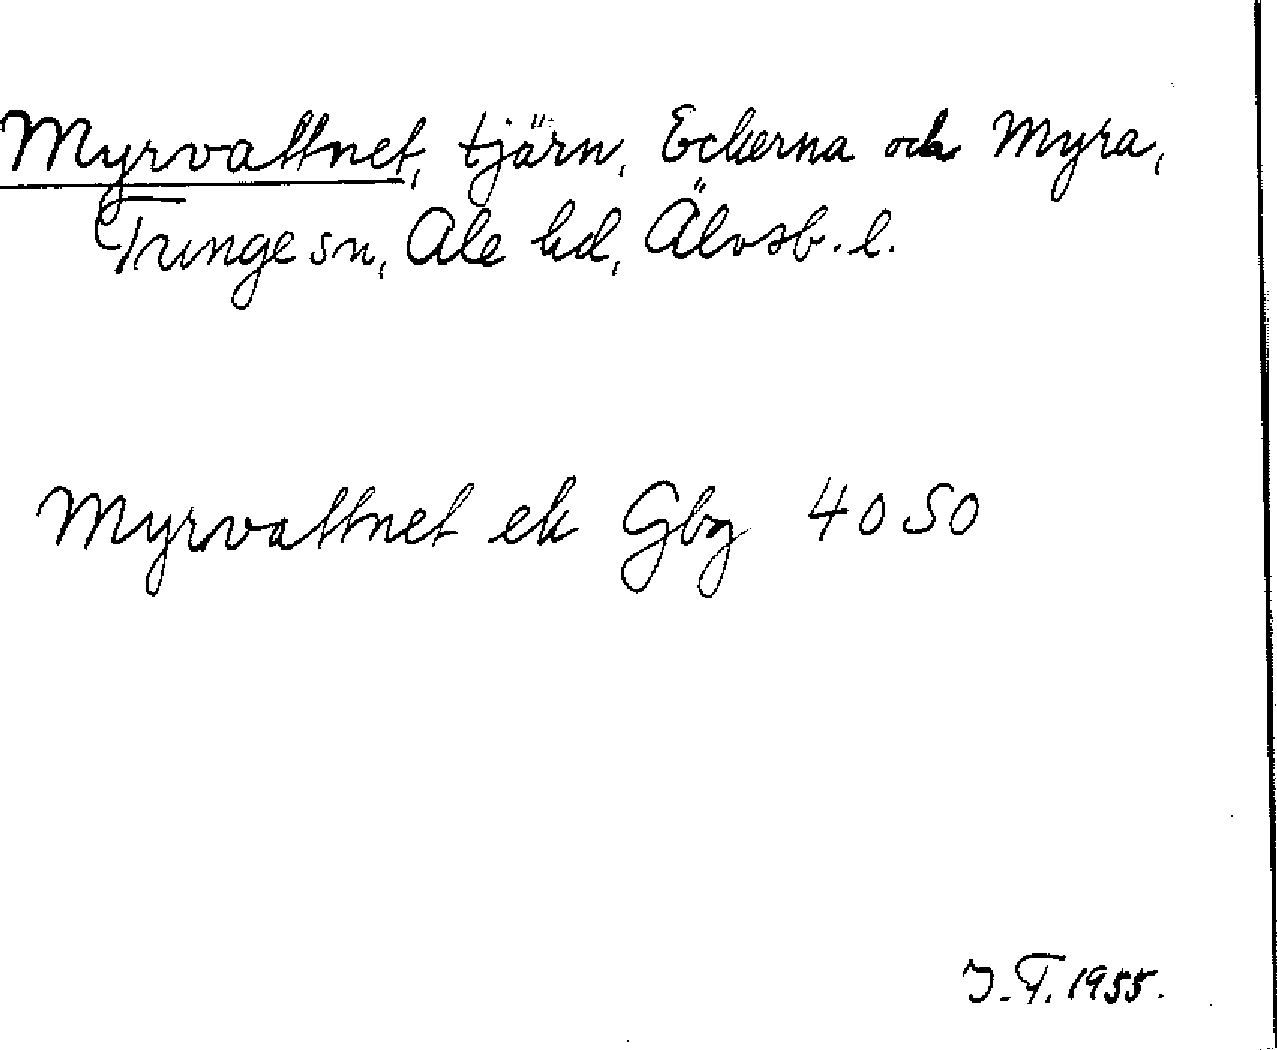 Myrvattnet, tjärn, Eckerna och Myra,
Tunge sn, Ale hd, Älvsb. l.
Myrvattnet ek Gbg 4050
J.T. 1955.